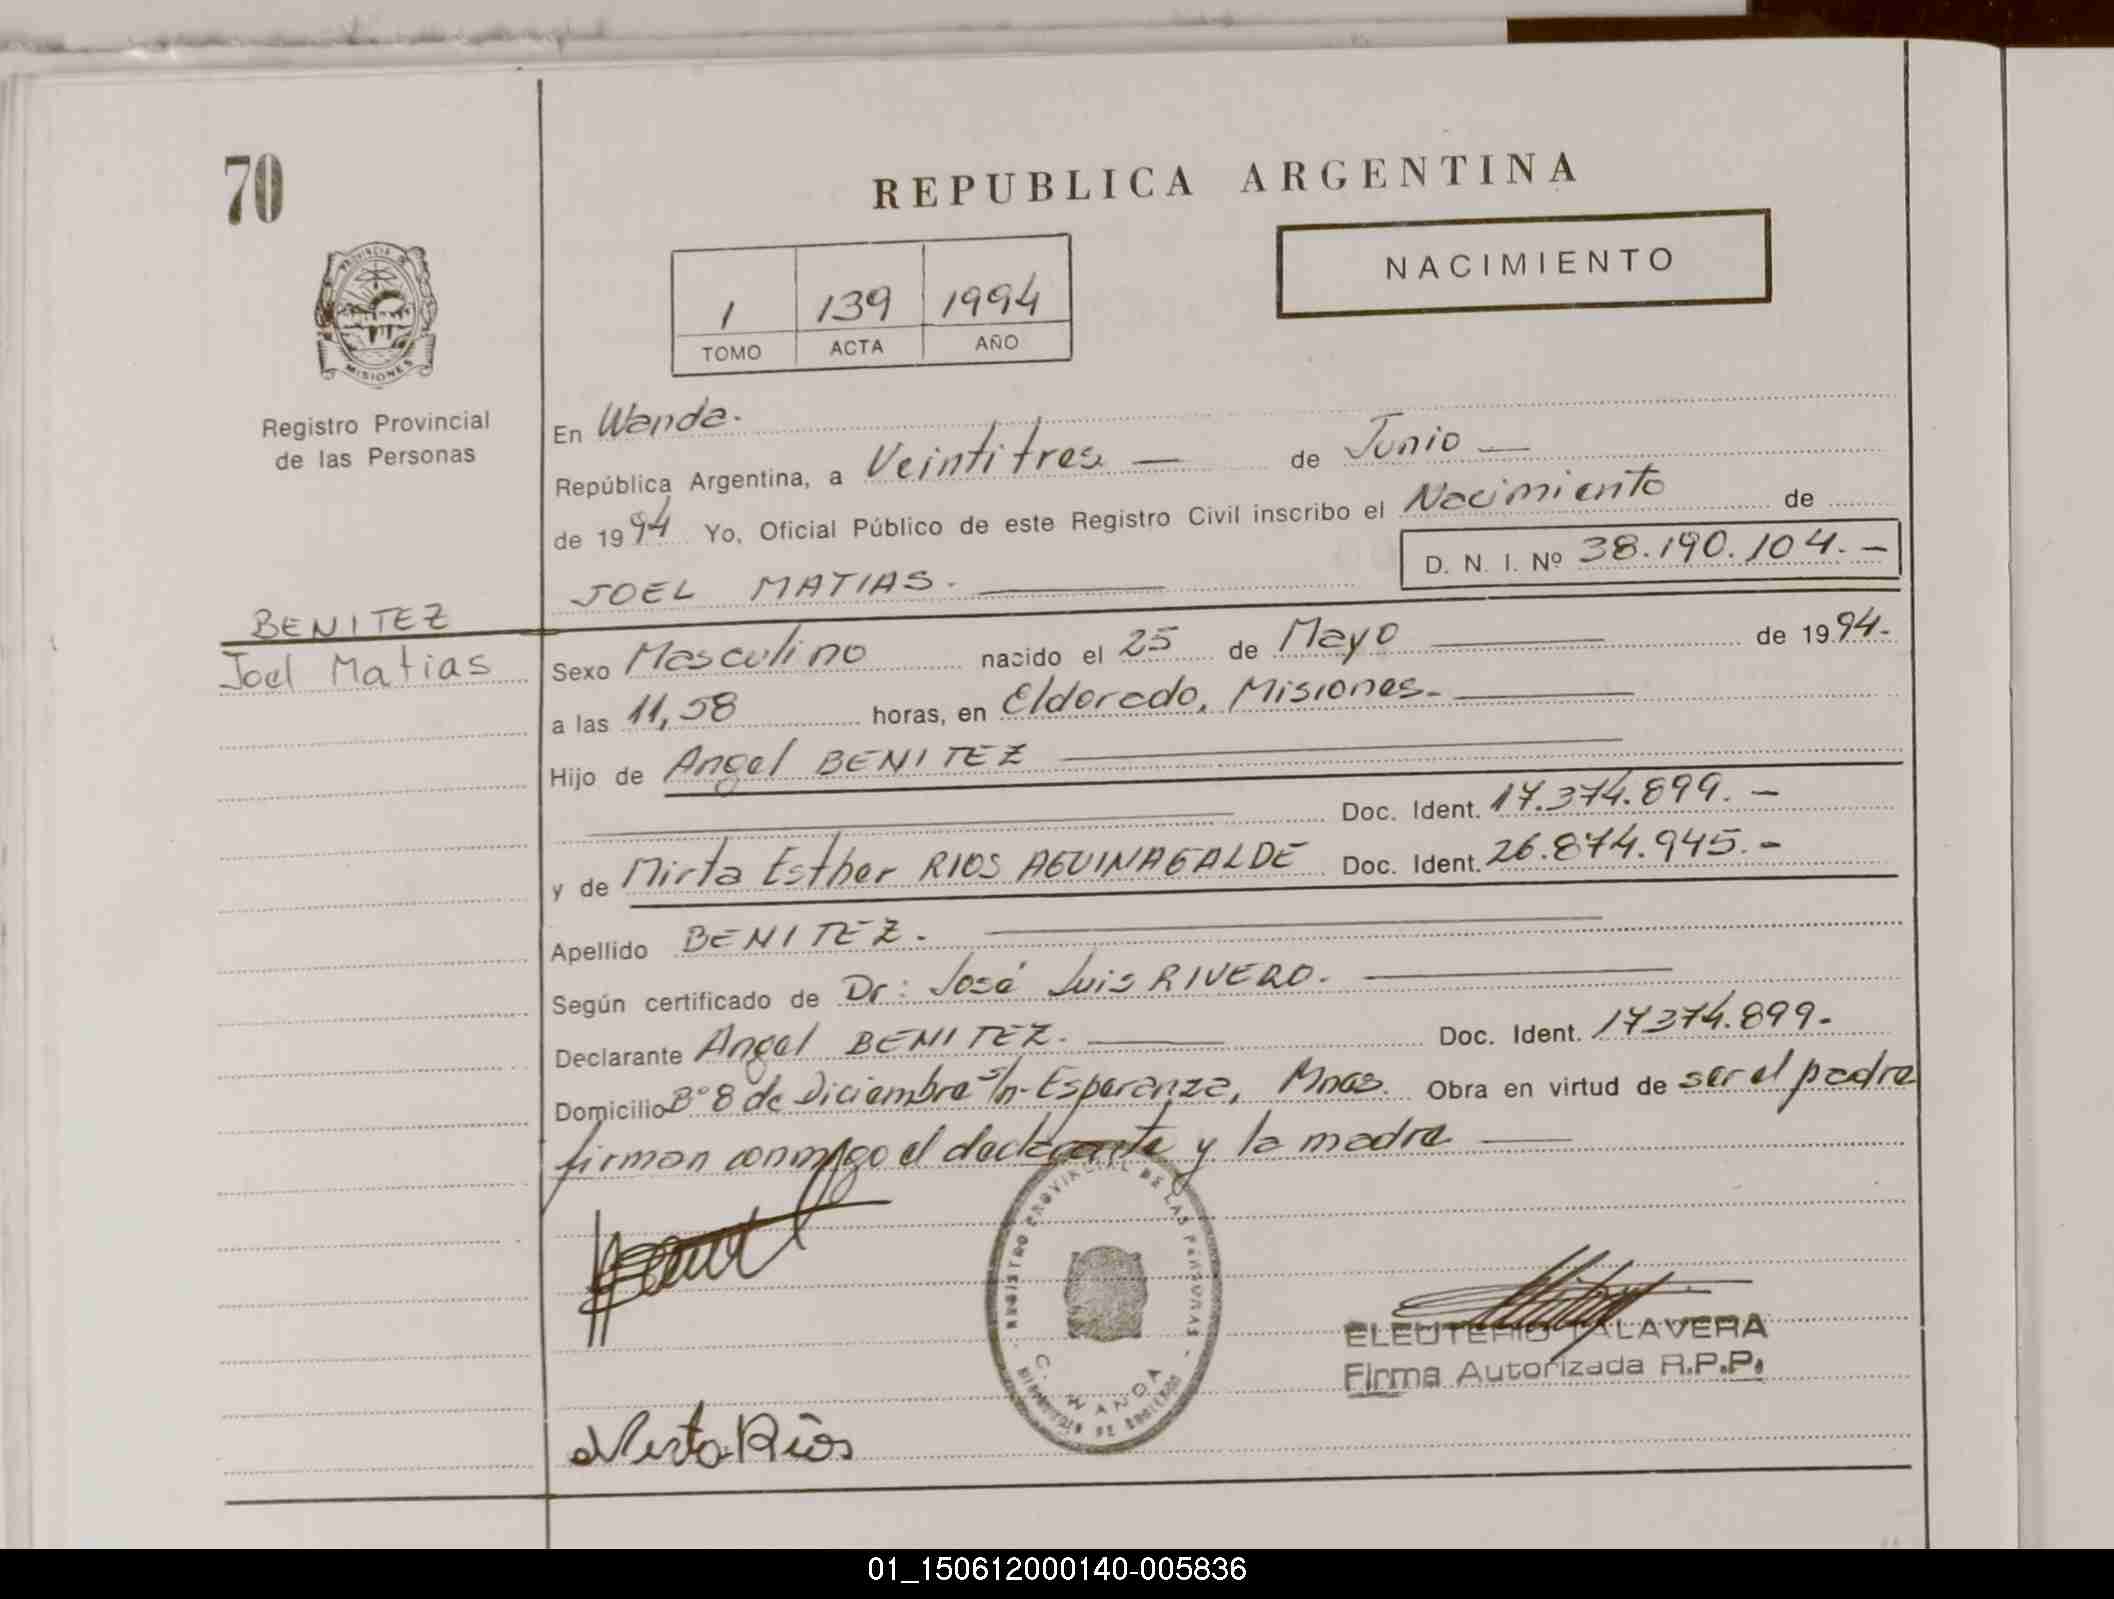 70
REPUBLICA ARGENTINA
NACIMIENTO
1 139 1994
TOMO ACTA AÑO
PROVINCIA DE
MISIONES
Registro Provincial
de las Personas
En Wanda.
República Argentina, a Veintitres — de Junio —
de 1994 Yo, Oficial Público de este Registro Civil inscribo el Nacimiento de
D. N. I. Nº 38.190.104.-
JOEL MATIAS.
BENITEZ
Joel Matias
Sexo Masculino nacido el 25 de Mayo de 1994.-
a las 11,58 horas, en Eldorado, Misiones.-
Hijo de Angel BENITEZ
Doc. Ident. 17.374.899.-
y de Mirta Esther RIOS AGUINAGALDE Doc. Ident. 26.874.945.-
Apellido BENITEZ.
Según certificado de Dr: José Luis RIVERO.
Declarante Angel BENITEZ. Doc. Ident. 17374.899.-
Domicilio Bº 8 de Diciembre s/n-Esperanza, Mnes. Obra en virtud de ser el padre
firman conmigo el declarante y la madre
REGISTRO PROVINCIAL DE LAS PERSONAS
WANDA
ELEUTERIO TALAVERA
Firma Autorizada R.P.P.
Mirta Rios
01_150612000140-005836